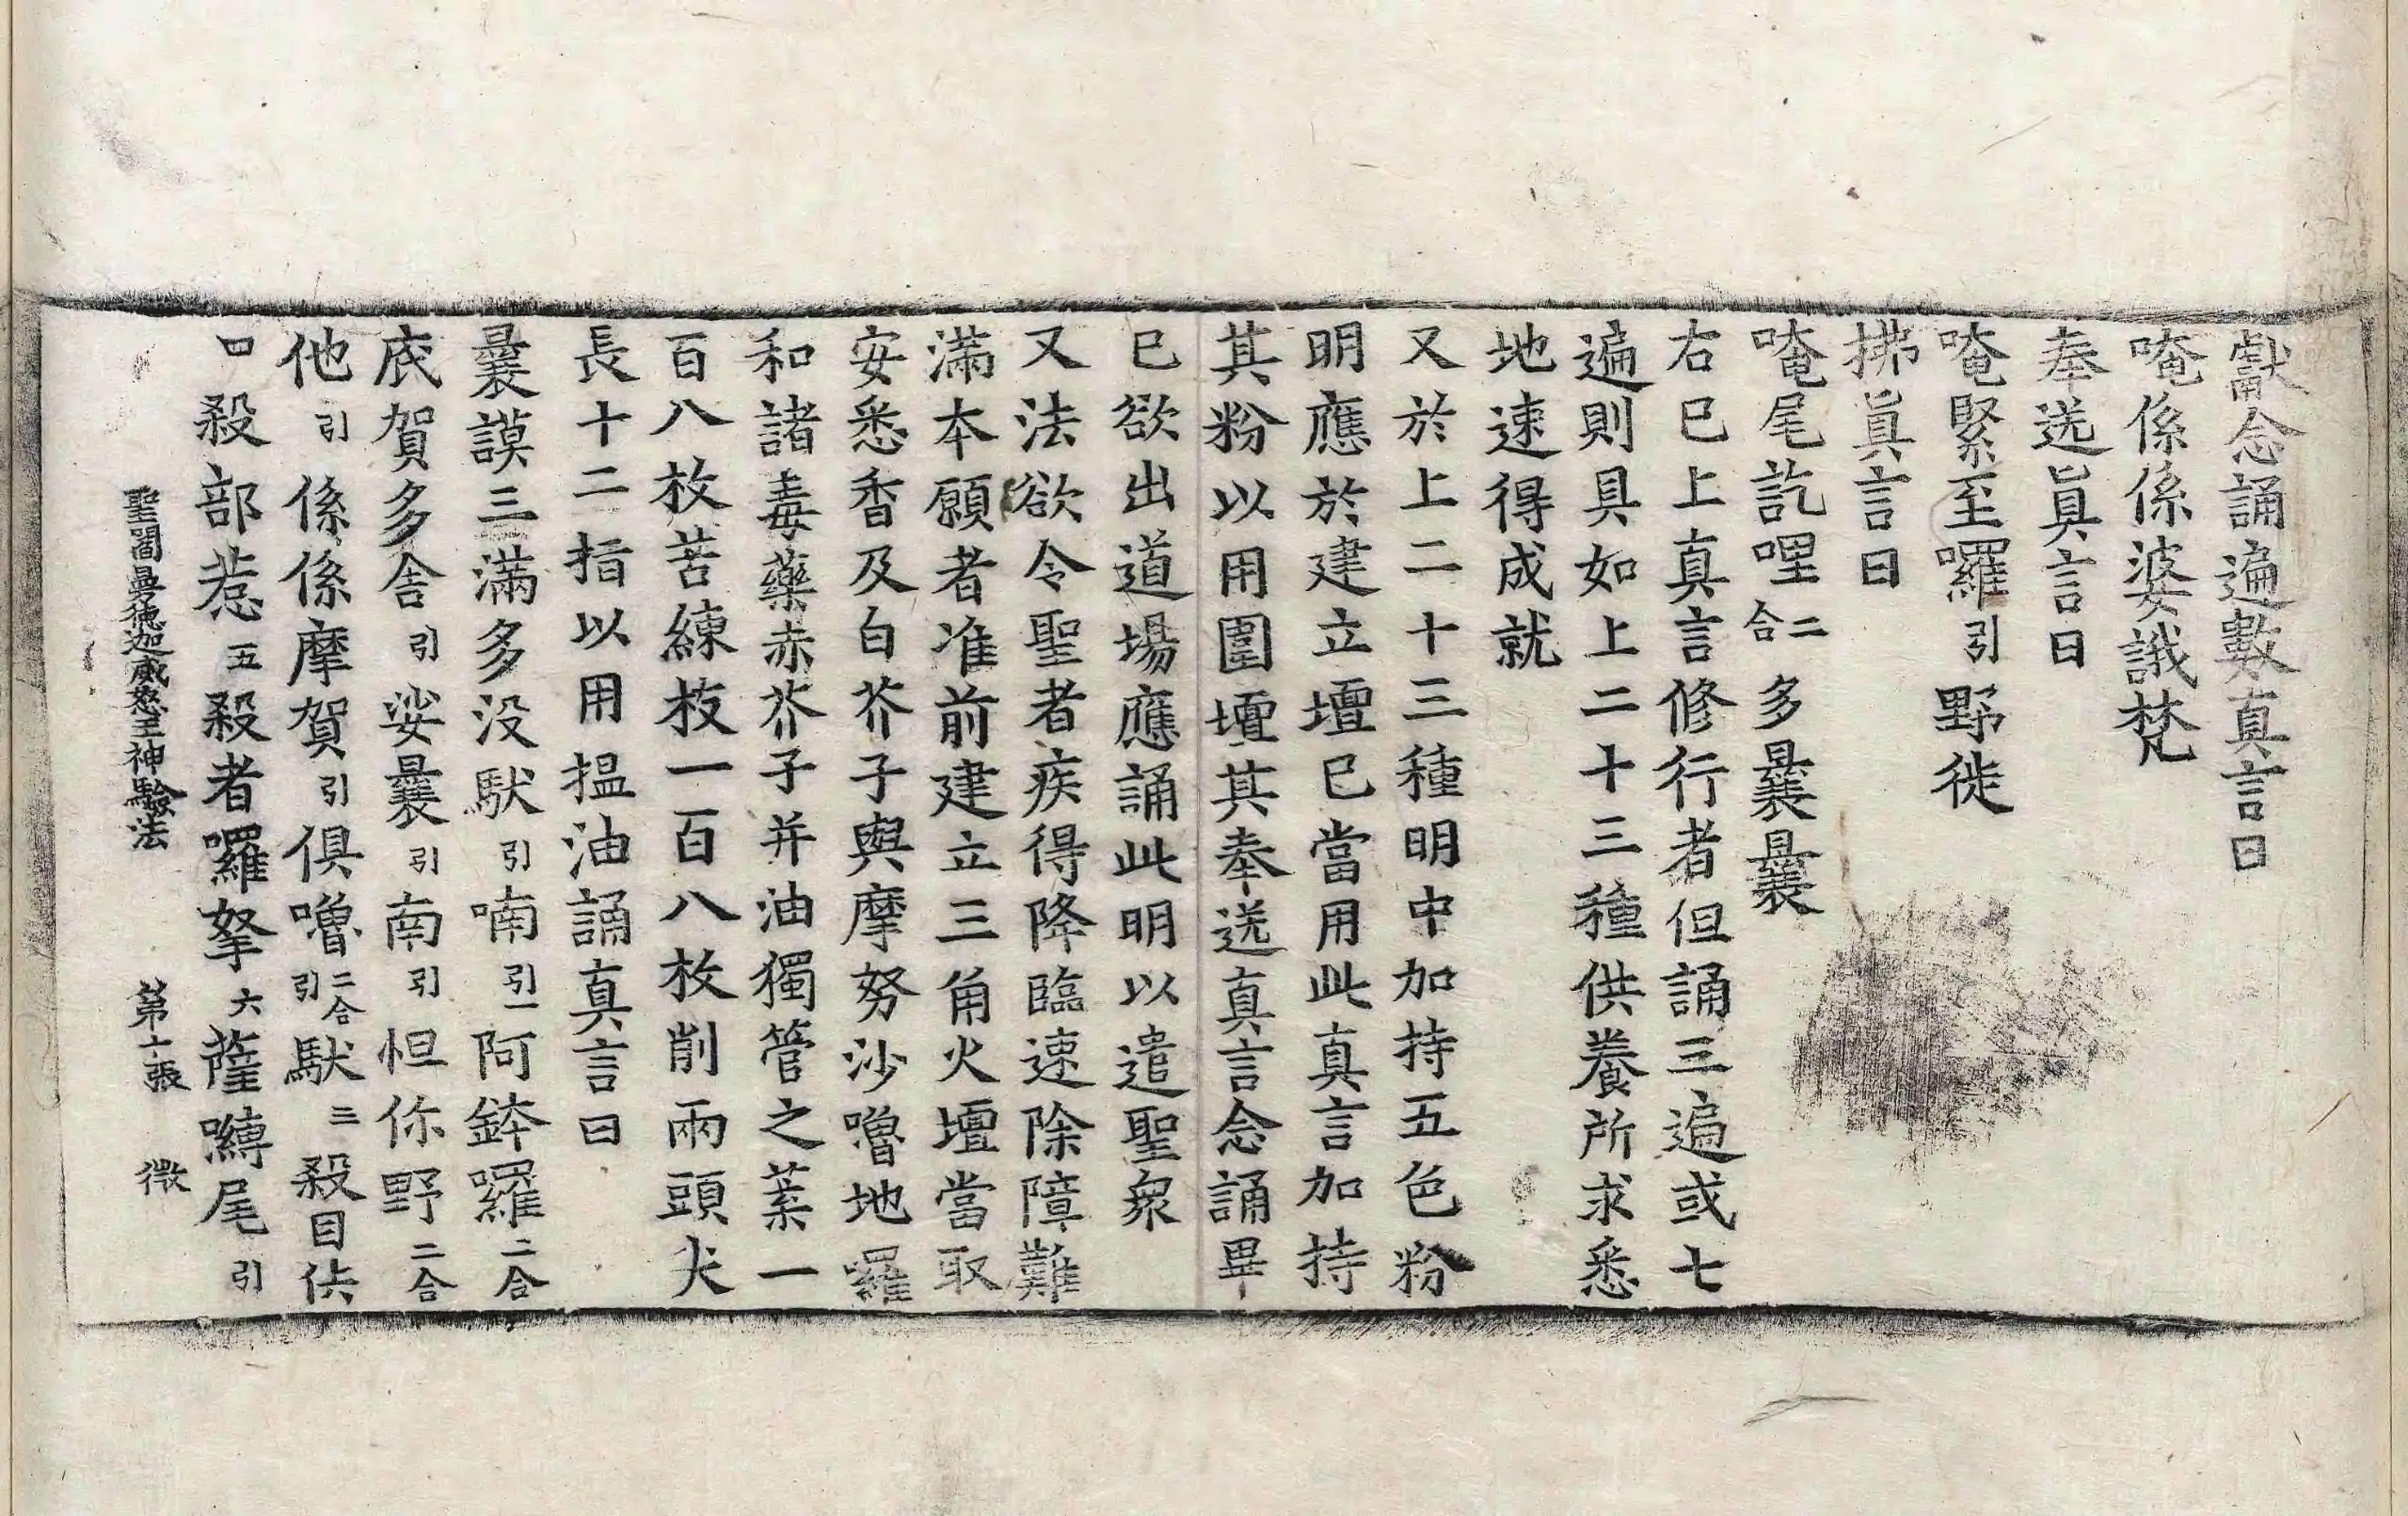 獻念誦遍數真言曰
唵係係婆誐梵
奉送真言曰
唵緊至囉引野徙
拂真言曰
唵尾訖哩二合多曩曩
右已上真言修行者但誦三遍或七
遍則具如上二十三種供養所求悉
地速得成就
又於上二十三種明中加持五色粉
明應於建立壇已當用此真言加持
其粉以用圍壇其奉送真言念誦畢
已欲出道場應誦此明以遣聖衆
又法欲令聖者疾得降臨速除障難
滿本願者准前建立三角火壇當取
安悉香及白芥子與摩努沙嚕地囉
和諸毒藥赤芥子并油獨管之葉一
百八枚苦練枝一百八枚削兩頭尖
長十二指以用揾油誦真言曰
曩謨三滿多没馱引喃引一阿鉢囉二合
底賀多舍引娑曩引南引怛你野二合
他引係係摩賀引俱嚕二合引馱三殺目佉
口殺部惹五殺者囉拏六薩嚩尾引
聖閻曼德迦威怒王神驗法 第十張 微